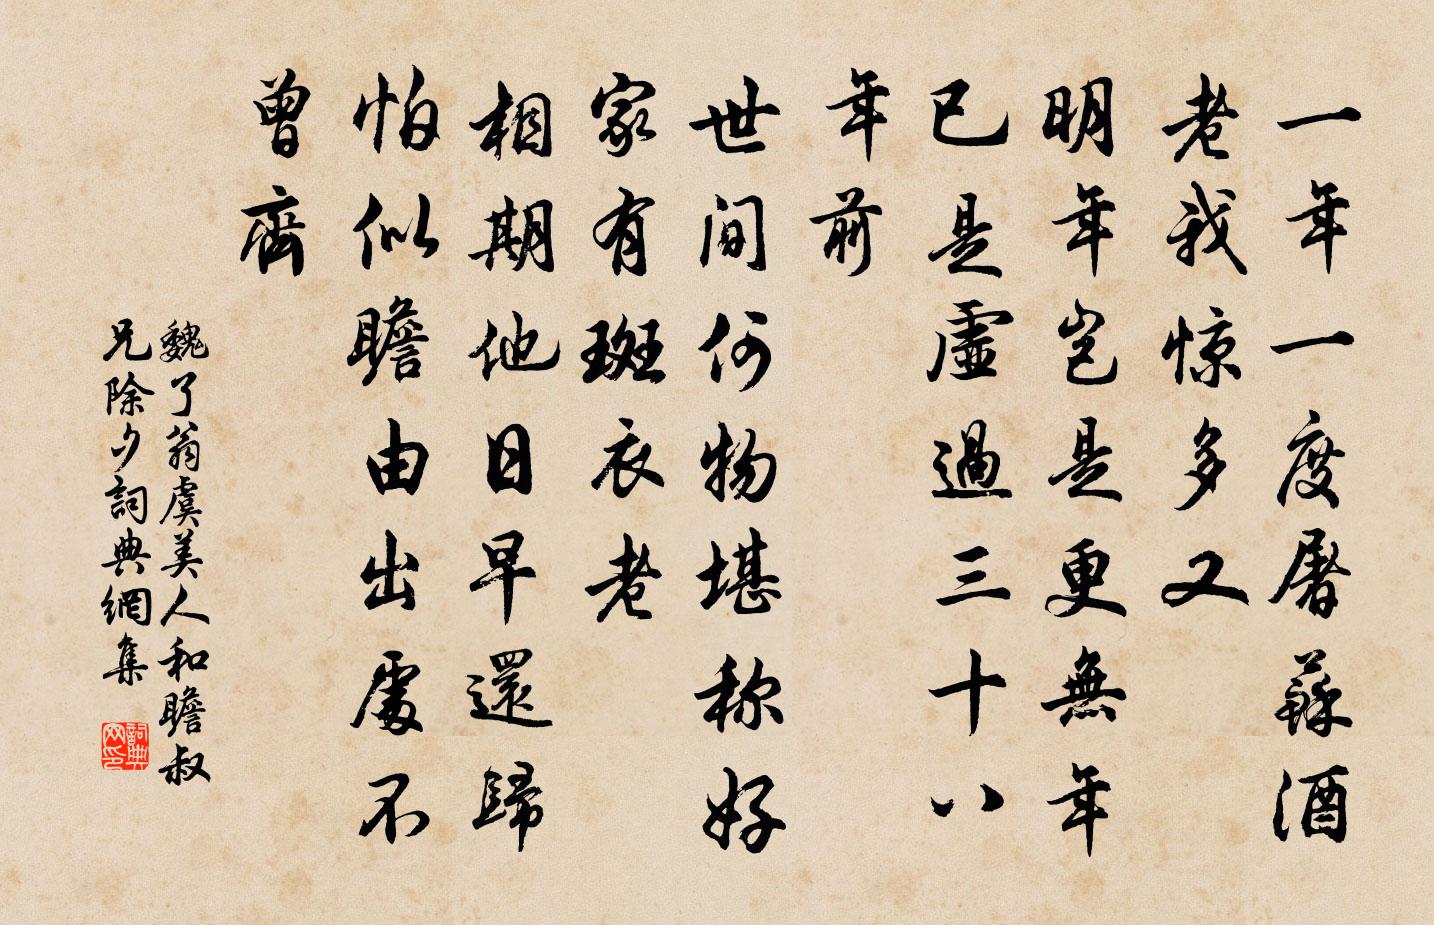 一年一度屠蘇酒
老我惊多又
明年岂是更無年
已是虛過三十八
年前
世间何物堪称好
家有斑衣老
相期他日早還歸
怕似瞻由出處不
曾齊
魏了翁虞美人和瞻叔
兄除夕詞典網集
詞典网印